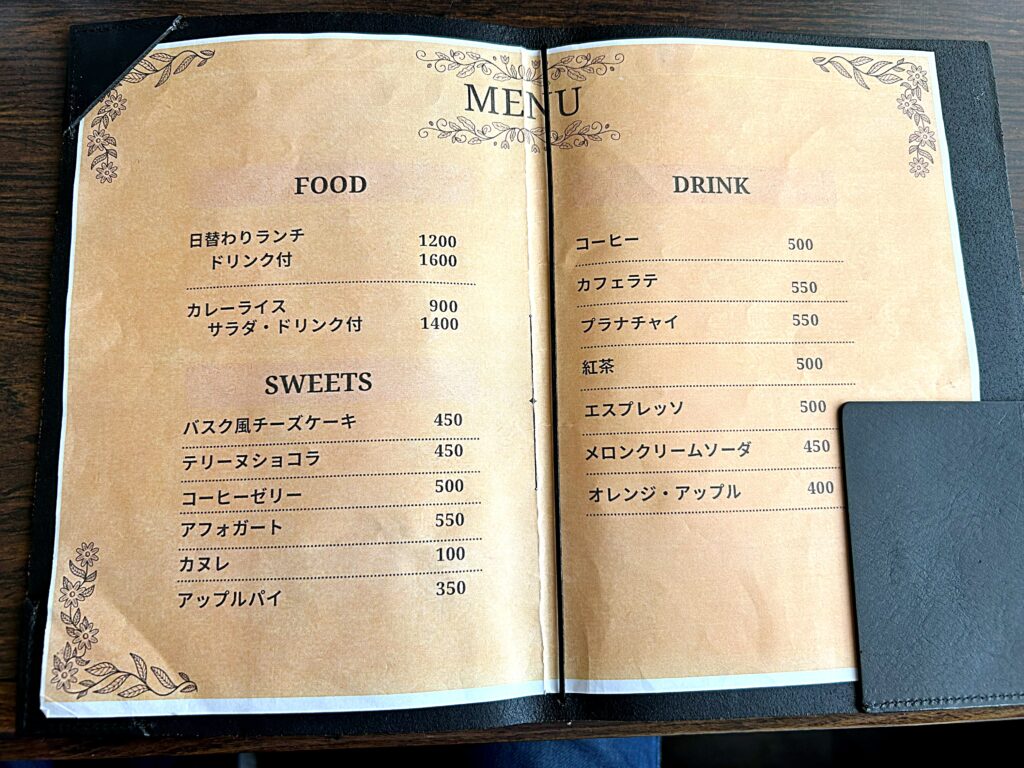 MENU
FOOD
日替わりランチ 1200
ドリンク付 1600
カレーライス 900
サラダ・ドリンク付 1400
SWEETS
バスク風チーズケーキ 450
テリーヌショコラ 450
コーヒーゼリー 500
アフォガート 550
カヌレ 100
アップルパイ 350
DRINK
コーヒー 500
カフェラテ 550
プラナチャイ 550
紅茶 500
エスプレッソ 500
メロンクリームソーダ 450
オレンジ・アップル 400